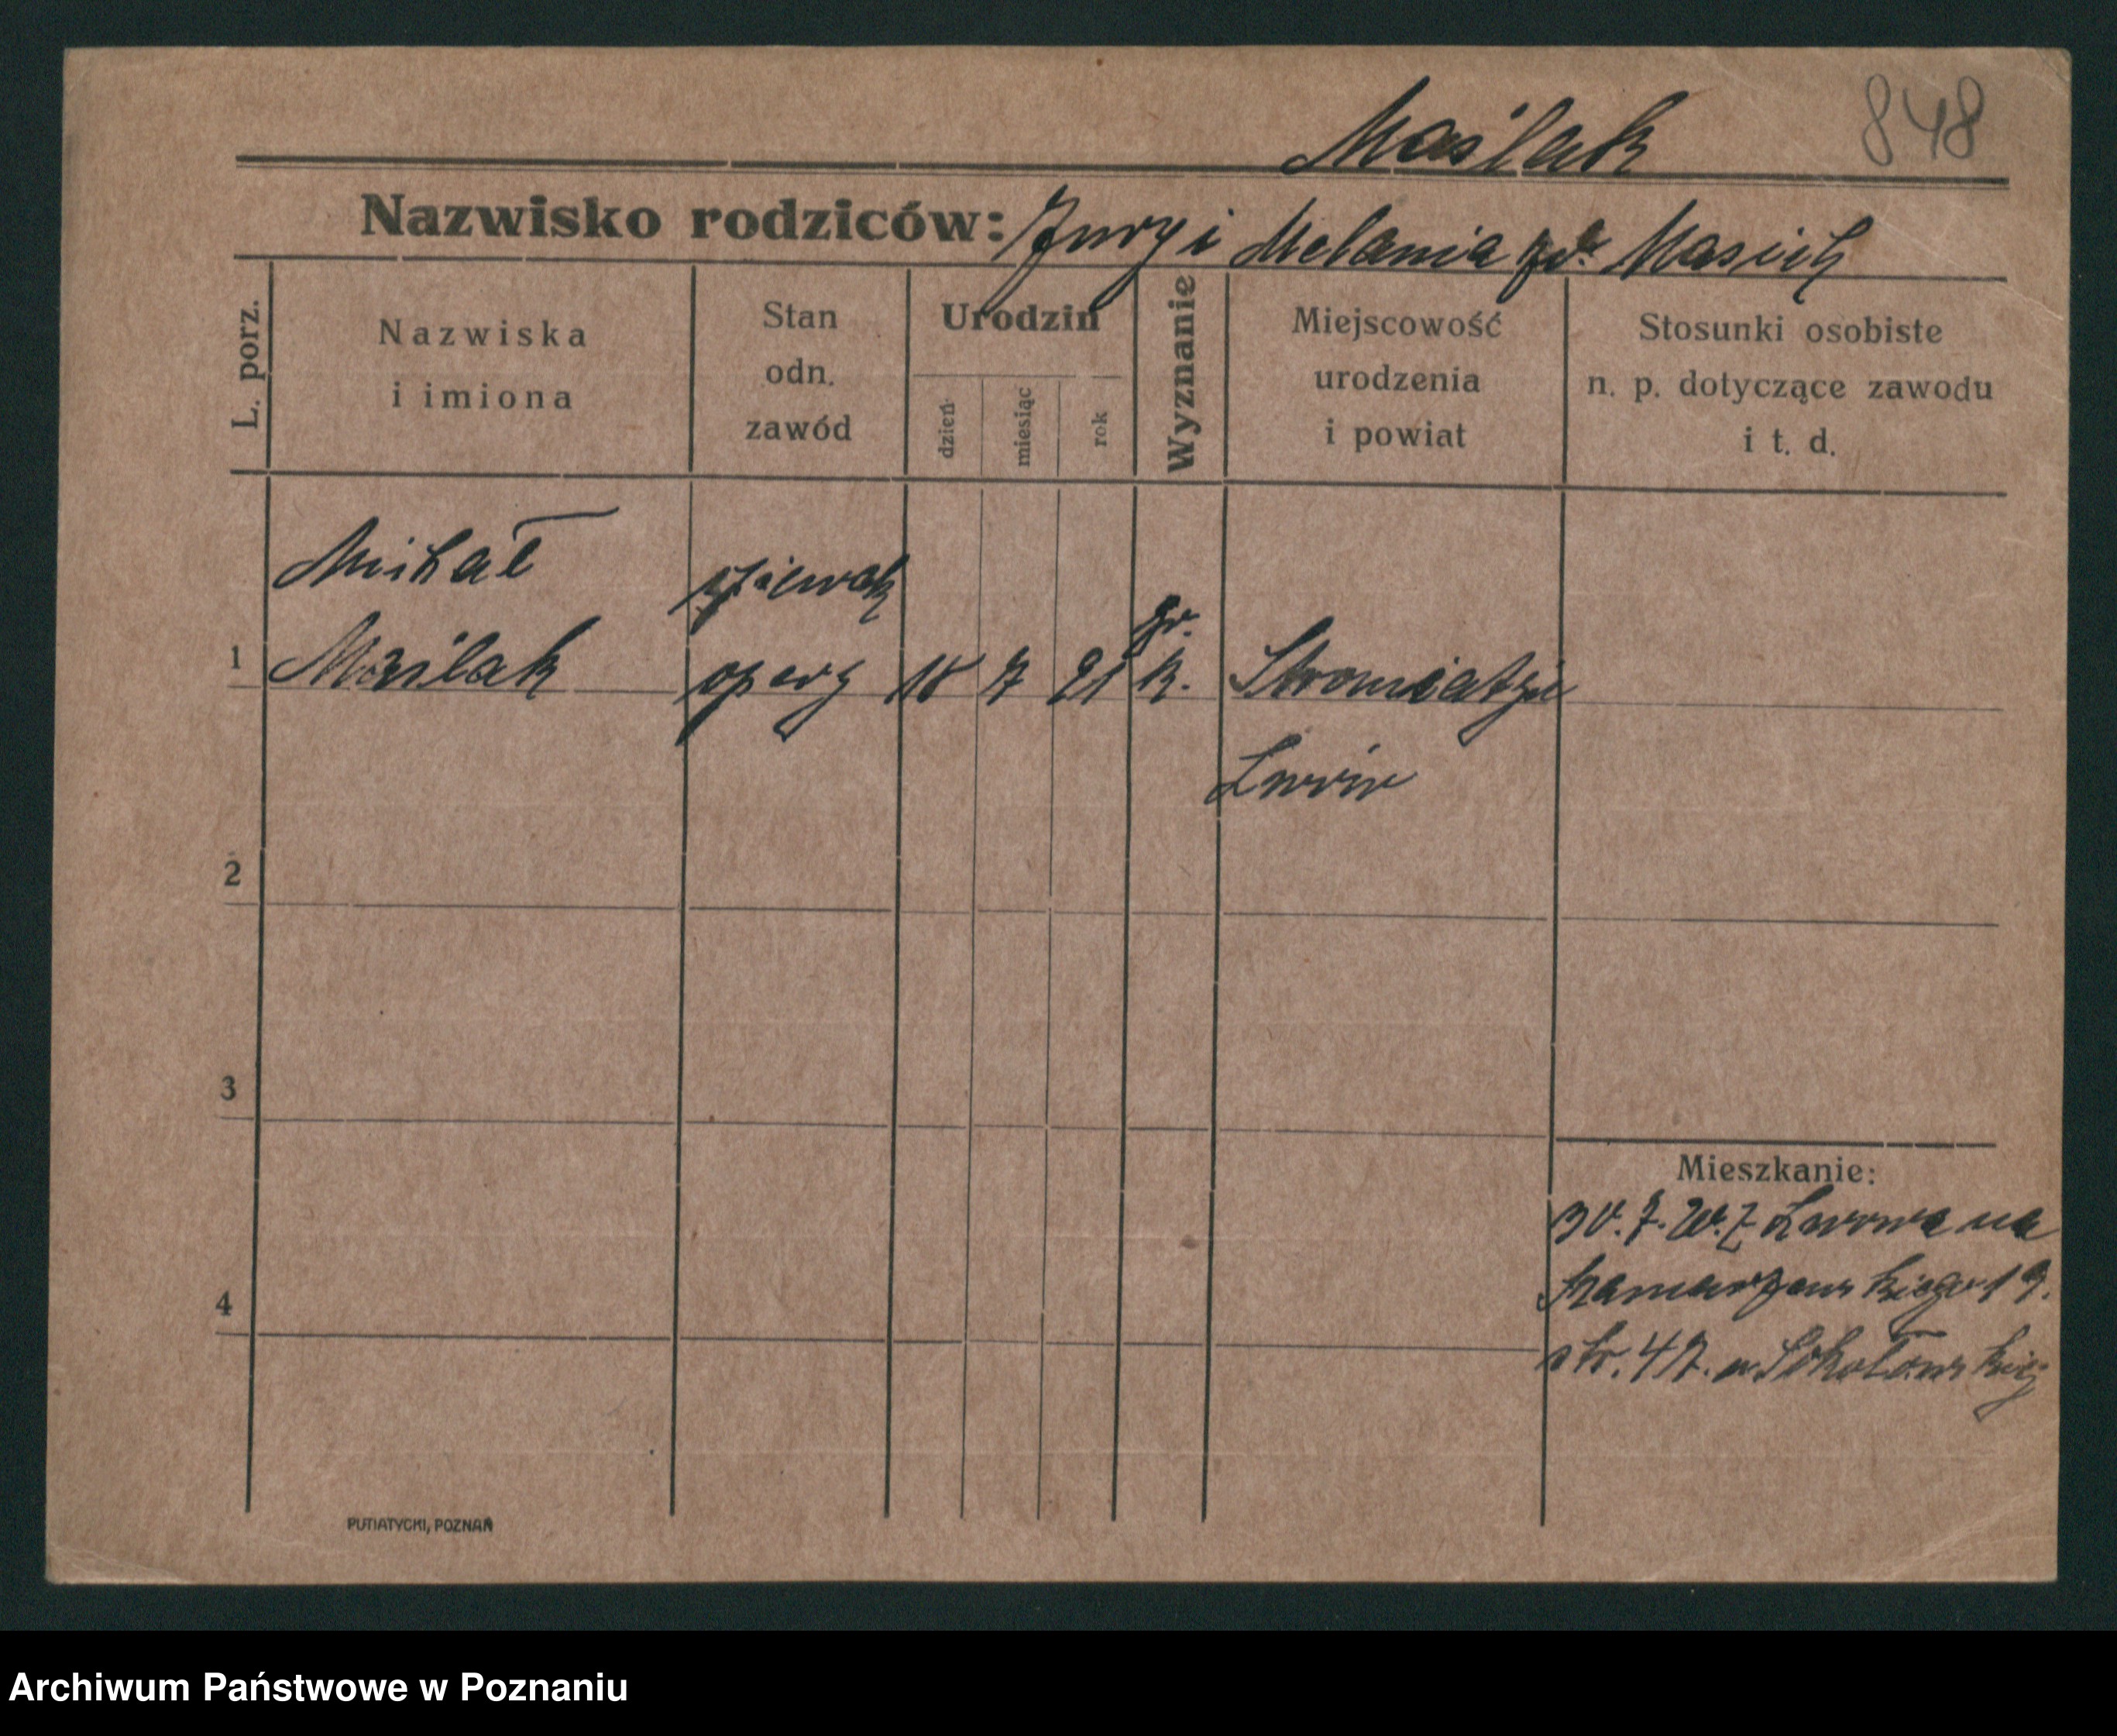 848
Maślak
Nazwisko rodziców: Jury i Melania zd. Masiuk
L. porz.
Nazwiska
i imiona
Stan
odn.
zawód
Urodzin
dzień
miesiąc
rok
Wyznanie
Miejscowość
urodzenia
i powiat
Stosunki osobiste
n. p. dotyczące zawodu
i t. d.
Michał
śpiewak
gr.
1 Maślak opery 18 7 21 k.
Lwów
2
3
Mieszkanie:
30. 7. z Lwowa na
19.
4
str. 47. u Sokołowskiej
PUTIATYCKI, POZNAŃ
Archiwum Państwowe w Poznaniu